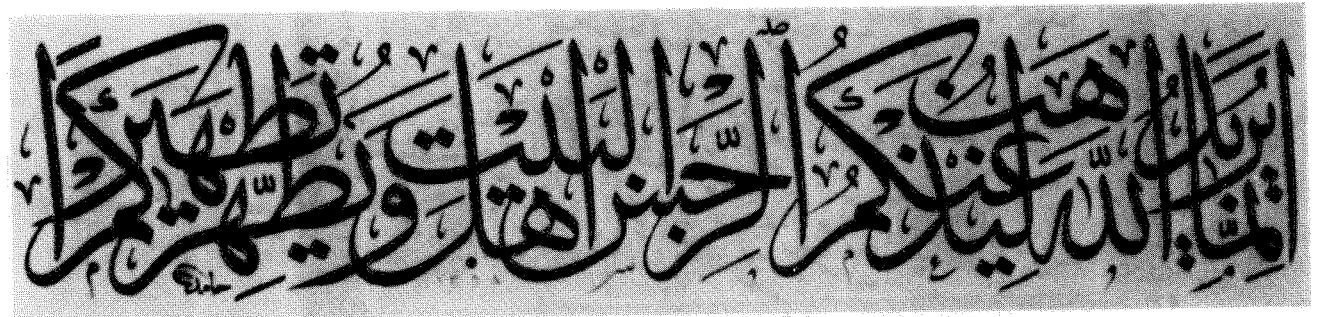 إِنَّمَا يُرِيدُ اللَّهُ لِيُذْهِبَ عَنْكُمُ الرِّجْسَ أَهْلَ الْبَيْتِ وَيُطَهِّرَكُمْ تَطْهِيرًا